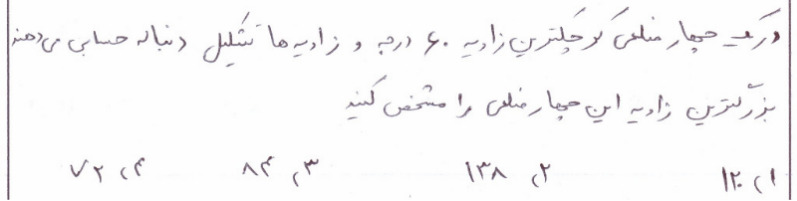 در یک چهار ضلعی کوچکترین زاویه ۶۰ درجه و زاویه ها تشکیل دنباله حسابی می دهند
بزرگترین زاویه این چهار ضلعی را مشخص کنید
۱) ۱۲۰ ۲) ۱۳۸ ۳) ۸۴ ۴) ۷۲